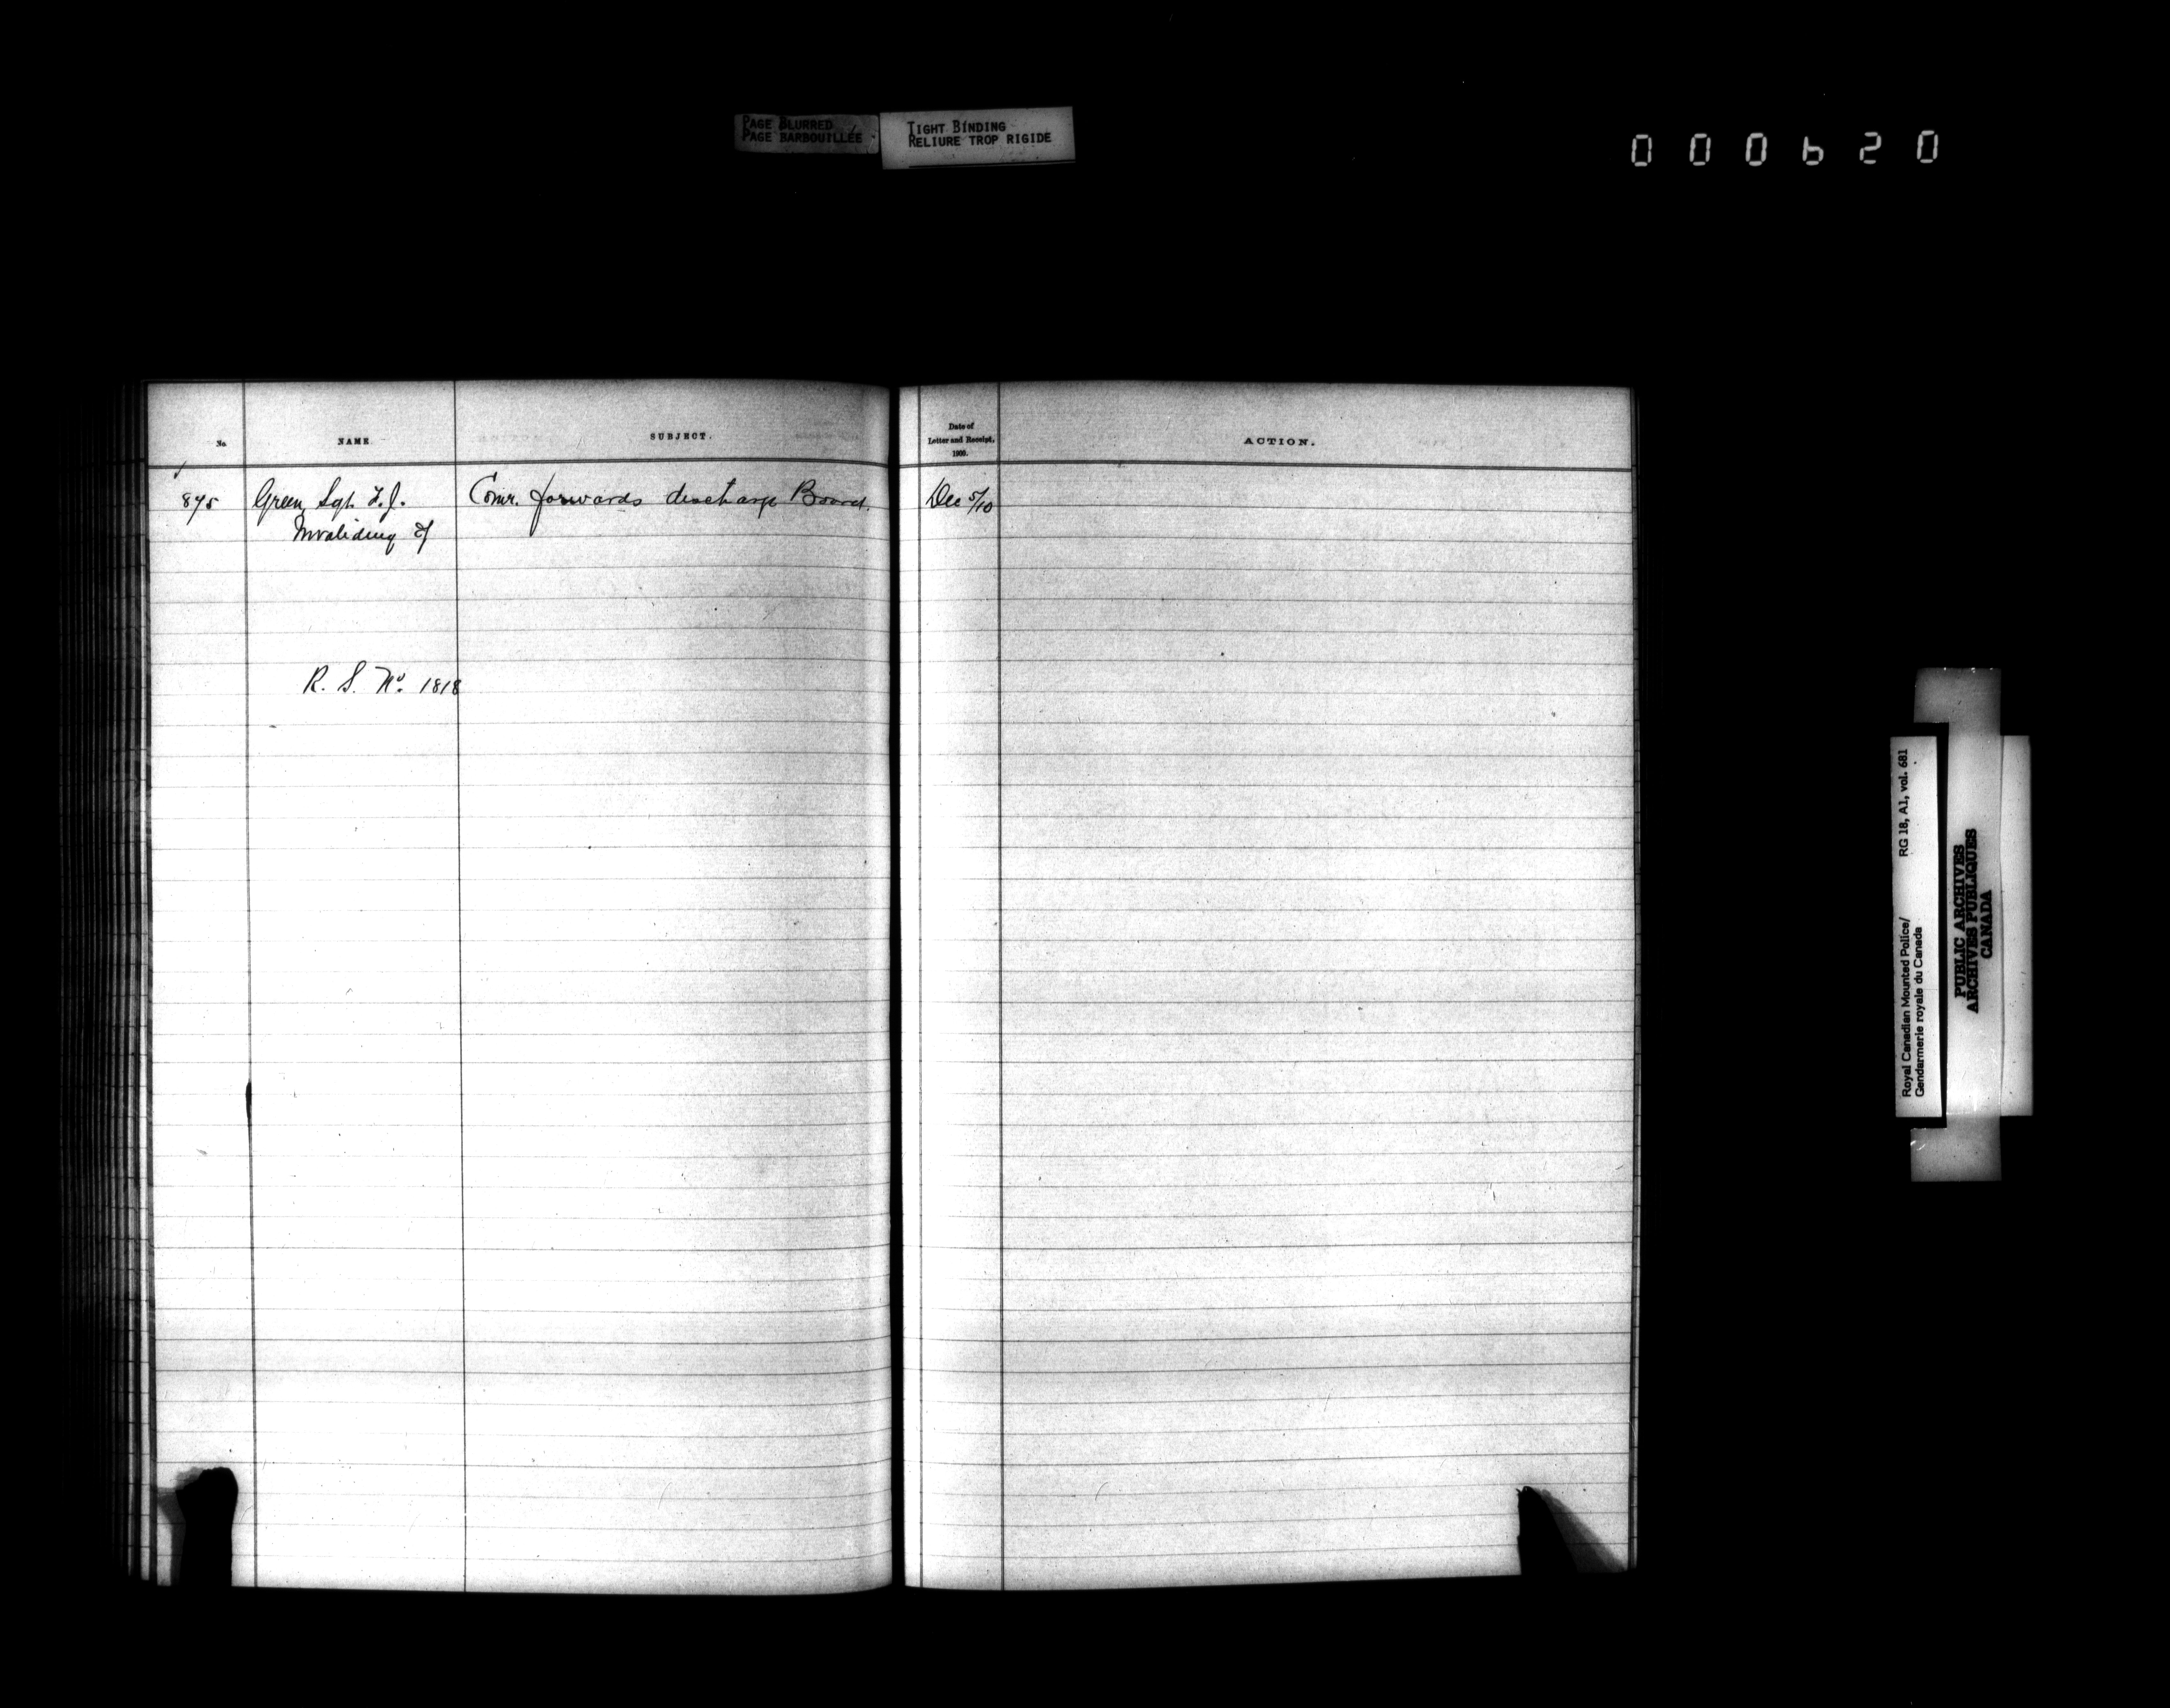 PAGE BLURRED
PAGE BARBOUILLÉE
TIGHT BINDING
RELIURE TROP RIGIDE
000620
No.
NAME.
SUBJECT.
Date of
Letter and Receipt,
1900.
ACTION.
875
Green, Sgt. F.J.
Invaliding of
Comr. forwards discharge Board.
Dec 5/10
R. S. No. 1818
Royal Canadian Mounted Police/
Gendarmerie royale du Canada
RG 18, A1, vol. 681
PUBLIC ARCHIVES
ARCHIVES PUBLIQUES
CANADA